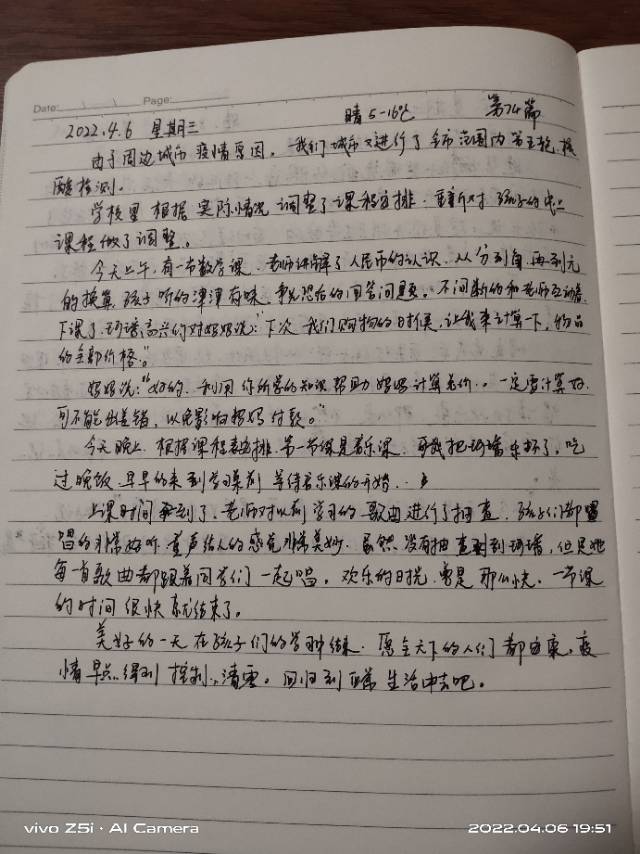 Date: / / Page:
2022.4.6 星期三 晴 5-16℃ 第74篇
由于周边城市疫情原因,我们城市又进行了全市范围内第五轮核
酸检测。
学校里根据实际情况调整了课程安排,重新对孩子的晚上
课程做了调整。
今天上午,有一节数学课,老师讲解了人民币的认识,从分到角,再到元
的换算,孩子听的津津有味,争先恐后的回答问题,不间断的和老师互动着,
下课了,高兴的对妈妈说:“下次我们购物的时候,让我来计算一下,物品
的全部价格。”
妈妈说:“好的,利用你所学的知识帮助妈妈计算总价,一定要计算好,
可不能出差错,以免影响妈妈付款。”
今天晚上,根据课程表安排,第一节课是音乐课,可把乐坏了,吃
过晚饭,早早的来到学习桌前等待音乐课的开始。
上课时间到了,老师对以前学习的歌曲进行了抽查,孩子们都
唱的非常好听,童声给人的感觉非常美妙,虽然没有抽查到,但是她
每一首歌曲都跟着同学们一起唱,欢乐的时光总是那么快,一节课
的时间很快就结束了。
美好的一天在孩子们的学习中结束,愿全天下的人们都健康,疫
情早点得到控制,清零,回归到正常生活中去吧。
vivo Z5i · AI Camera
2022.04.06 19:51